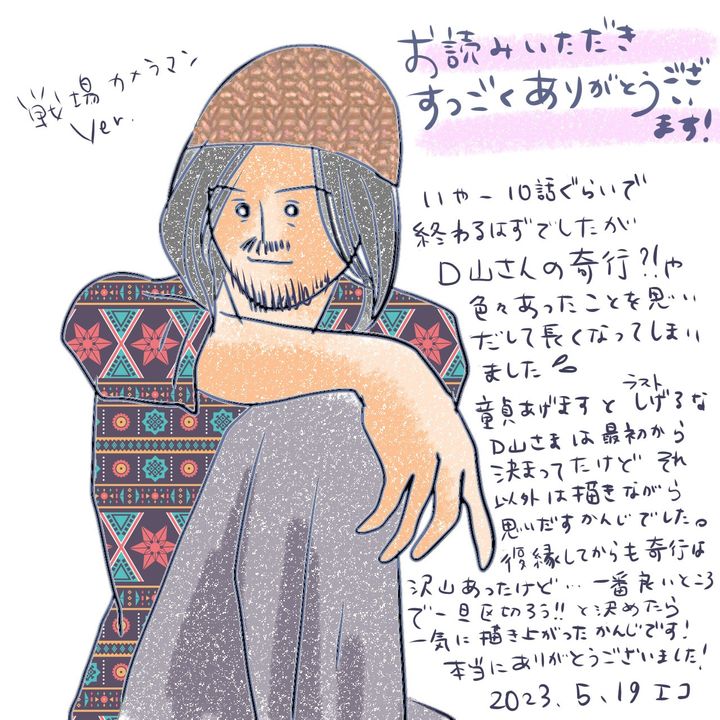 戦場カメラマン
ver.
お読みいただき
すっごくありがとうござい
ます!
いやー10話ぐらいで
終わるはずでしたが
D山さんの奇行?!や
色々あったことを思い
だして長くなってしまい
ました
童貞あげますと ラストしげるな
D山さまは最初から
決まってたけど それ
以外は描きながら
思いだすかんじでした。
復縁してからも奇行は
沢山あったけど…一番良いところ
で一旦区切ろう!!と決めたら
一気に描き上がったかんじです!
本当にありがとうございました!
2023.5.19 エコ